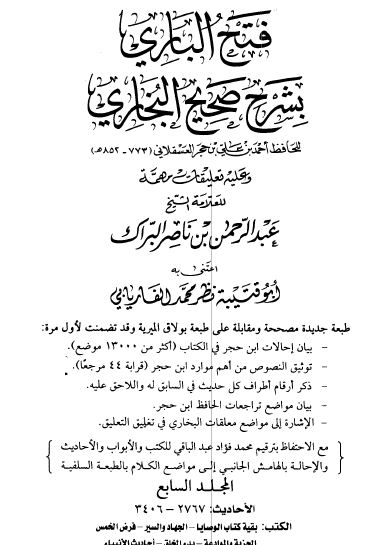 فتح الباري
بشرح صحيح البخاري
للحافظ أحمد بن علي بن حجر العسقلاني (٧٧٣ - ٨٥٢هـ)
وعليه تعليقات مهمة
للعلامة الشيخ
عبد الرحمن بن ناصر البراك
اعتنى به
أبو قتيبة نظر محمد الفاريابي
طبعة جديدة مصححة ومقابلة على طبعة بولاق الميرية وقد تضمنت لأول مرة:
- بيان إحالات ابن حجر في الكتاب (أكثر من ١٣٠٠٠ موضع).
- توثيق النصوص من أهم موارد ابن حجر (قرابة ٤٤ مرجعًا).
- ذكر أرقام أطراف كل حديث في السابق له واللاحق عليه.
- بيان مواضع تراجعات الحافظ ابن حجر.
- الإشارة إلى مواضع معلقات البخاري في تغليق التعليق.
مع الاحتفاظ بترقيم محمد فؤاد عبد الباقي للكتب والأبواب والأحاديث
والإحالة بالهامش الجانبي إلى مواضع الكلام بالطبعة السلفية
المجلد السابع
الأحاديث: ٢٧٦٧ - ٣٤٠٦
الكتب: بقية كتاب الوصايا - الجهاد والسير - فرض الخمس
الجزية والموادعة - بدء الخلق - أحاديث الأنبياء